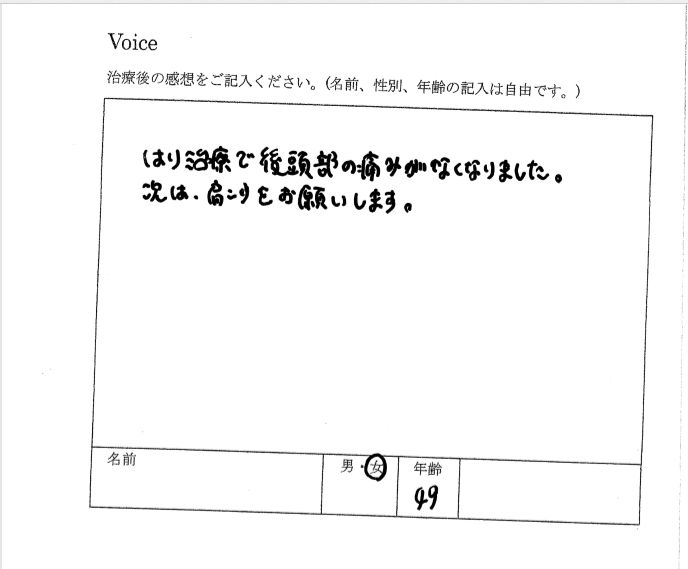 Voice
治療後の感想をご記入ください。(名前、性別、年齢の記入は自由です。)
はり治療で後頭部の痛みがなくなりました。
次は、肩こりをお願いします。
名前 男・女 年齢
49